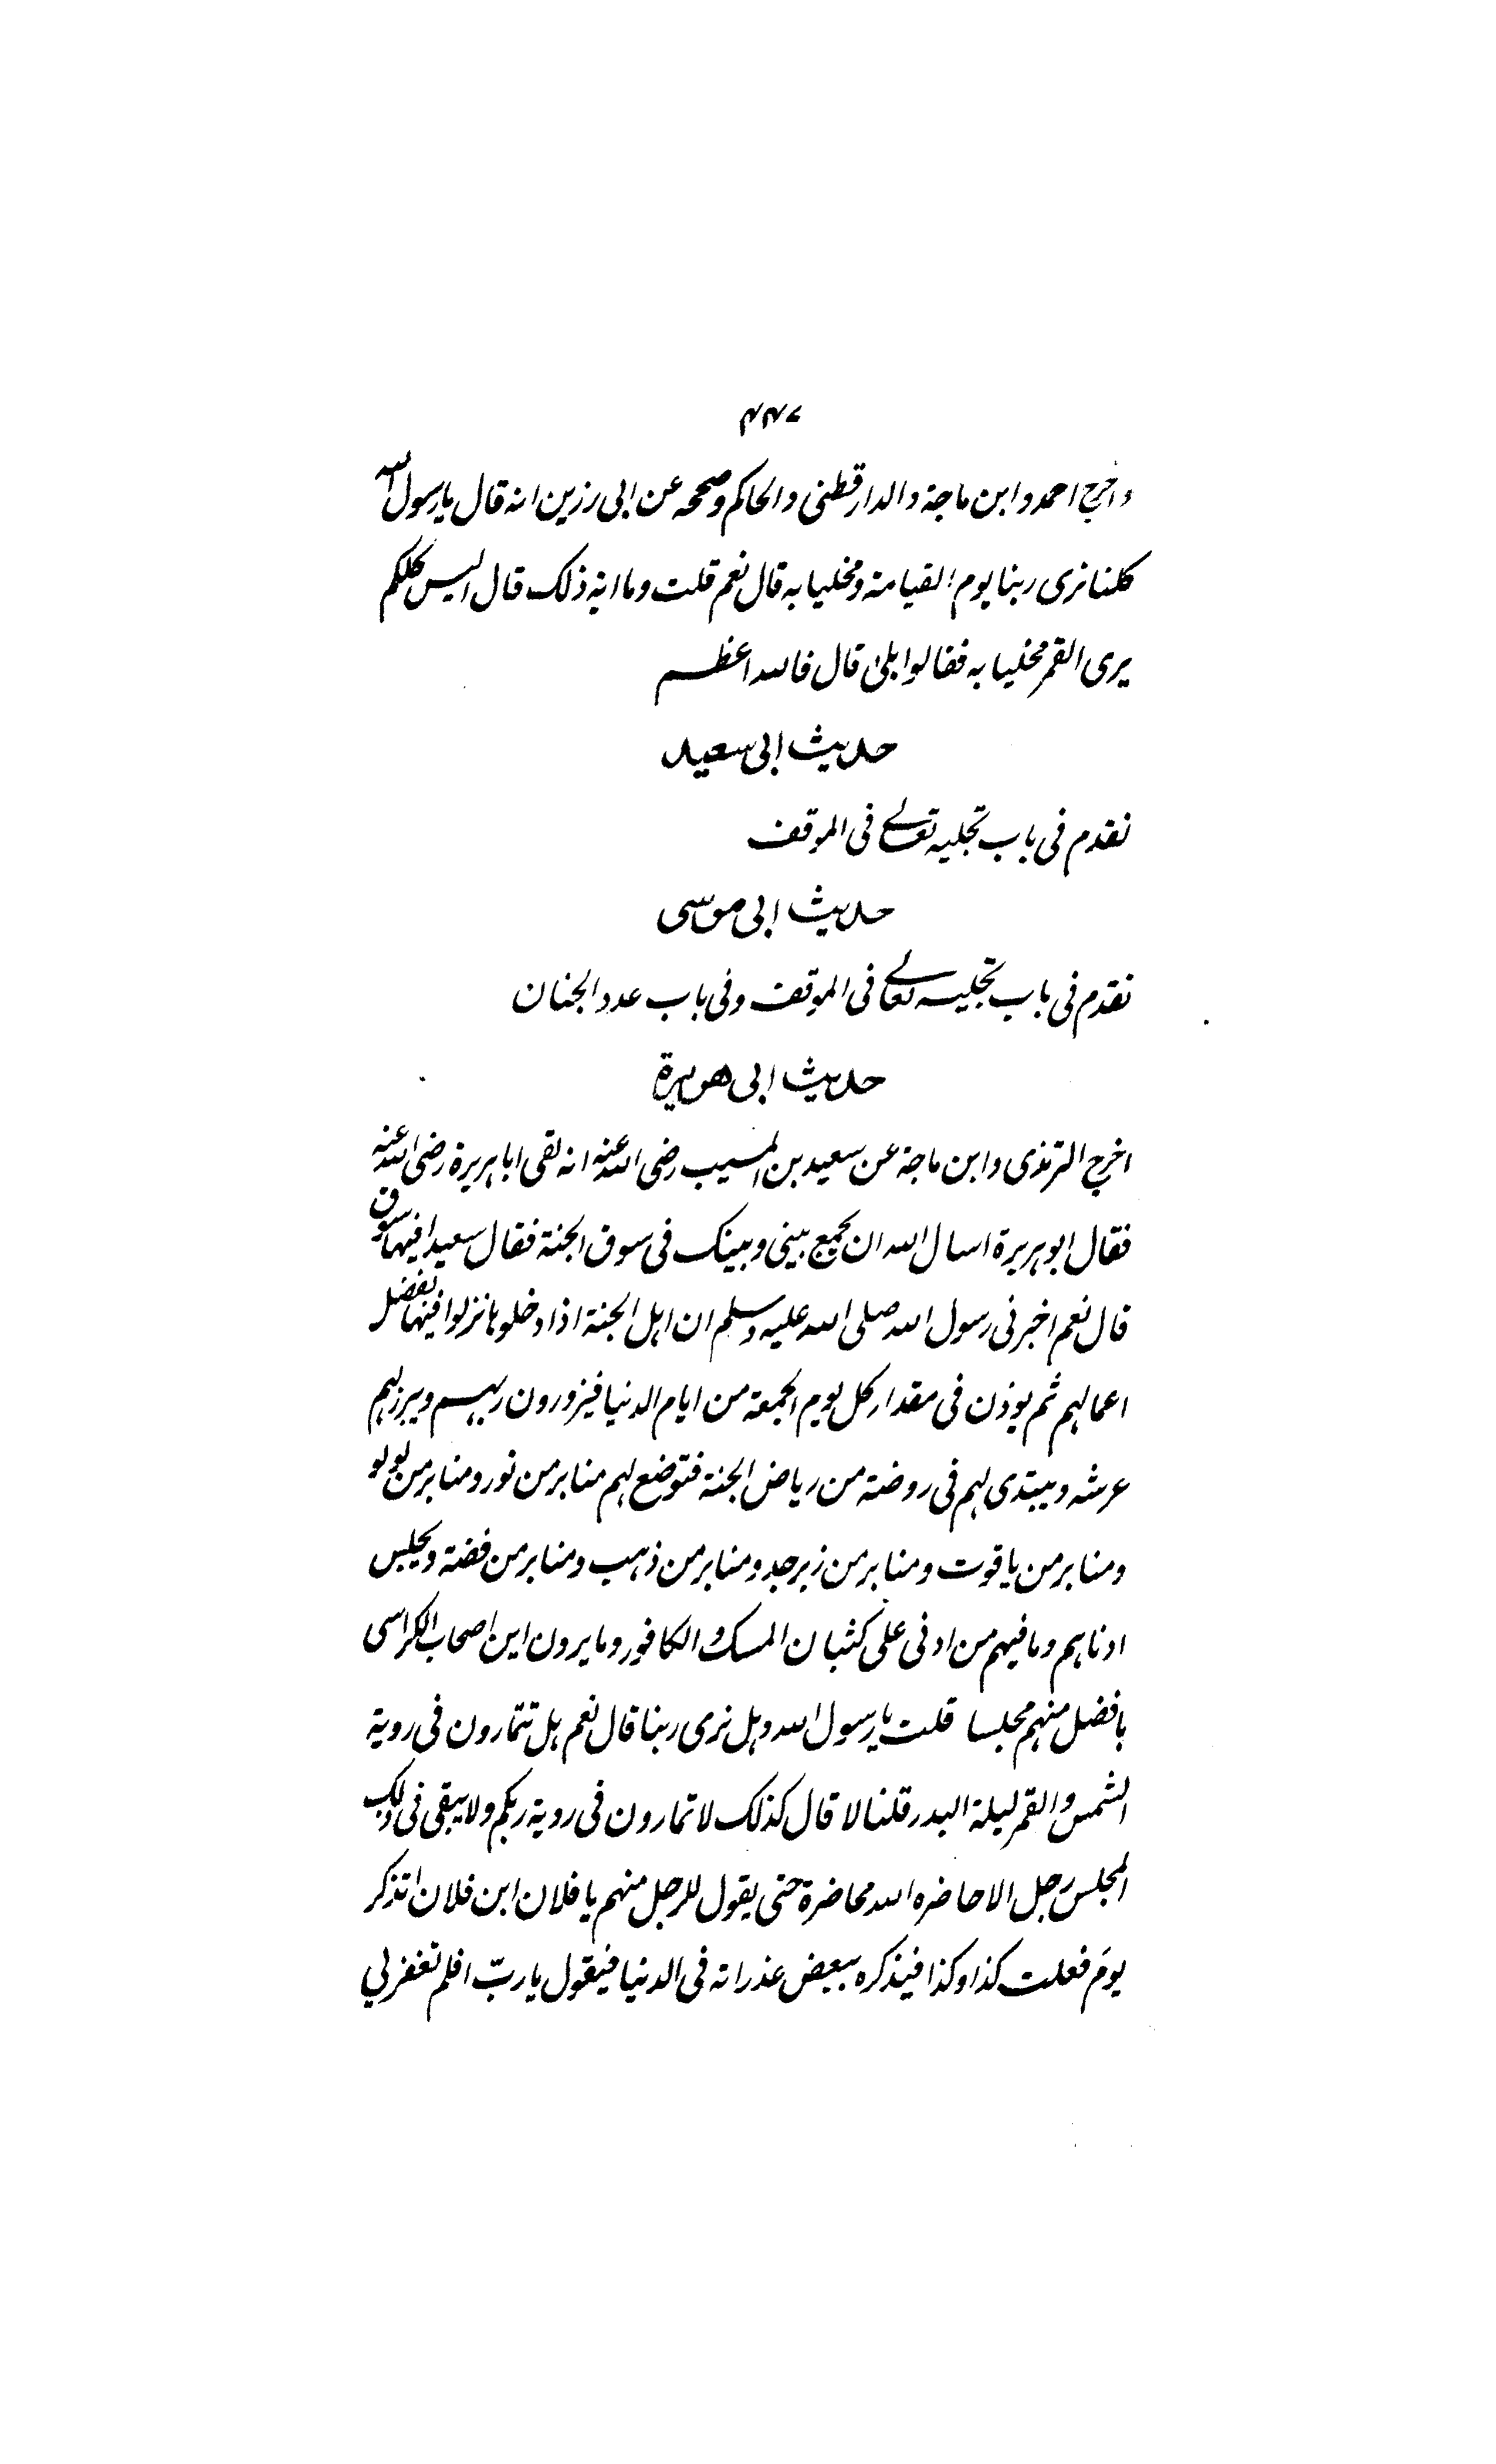 ۴۴۷
واخرج احمد وابن ماجة والدارقطنی والحاکم وصححه عن ابی رزین انه قال یا رسول الله
کلنا نری ربنا یوم القیامة ومخلیا به قال نعم قلت وما ایة ذلک قال الیس کلکم
یری القمر مخلیا به فقالوا بلی قال فالله اعظم
حدیث ابی سعید
تقدم فی باب تجلیه تعالے فی الموقف
حدیث ابی موسی
تقدم فی باب تجلیه تعالے فی الموقف وفی باب عدد الجنان
حدیث ابی هریرة
اخرج الترمذی وابن ماجة عن سعید بن المسیب رضی الله عنه انه لقی ابا ہریرة رضی الله عنه
فقال ابو ہریرة اسال الله ان یجمع بینی وبینک فی سوق الجنة فقال سعید افیها سوق
قال نعم اخبرنی رسول الله صلی الله علیه وسلم ان اہل الجنة اذا دخلوہا نزلوا فیها بفضل
اعمالہم ثم یوذن فی مقدار کل یوم الجمعة من ایام الدنیا فیزورون ربہم ویبرز لہم
عرشه ویبتدی لہم فی روضة من ریاض الجنة فتوضع لہم منابر من نور ومنابر من لولو
ومنابر من یاقوت ومنابر من زبرجد ومنابر من ذہب ومنابر من فضة ویجلس
ادناہم وما فیہم من ادنی علی کثبان المسک والکافور وما یرون این اصحاب الکراسی
بافضل منہم مجلسا قلت یا رسول الله وہل نری ربنا قال نعم ہل تتمارون فی رویة
الشمس والقمر لیلة البدر قلنا لا قال کذلک لا تمارون فی رویة ربکم ولا یبقی فی ذلک
المجلس رجل الا حاضره الله محاضرة حتی یقول للرجل منہم یا فلان ابن فلان اتذکر
یومَ فعلت کذا وکذا فیذکره ببعض عذراته فی الدنیا فیقول یا ربّ افلم تغفر لی